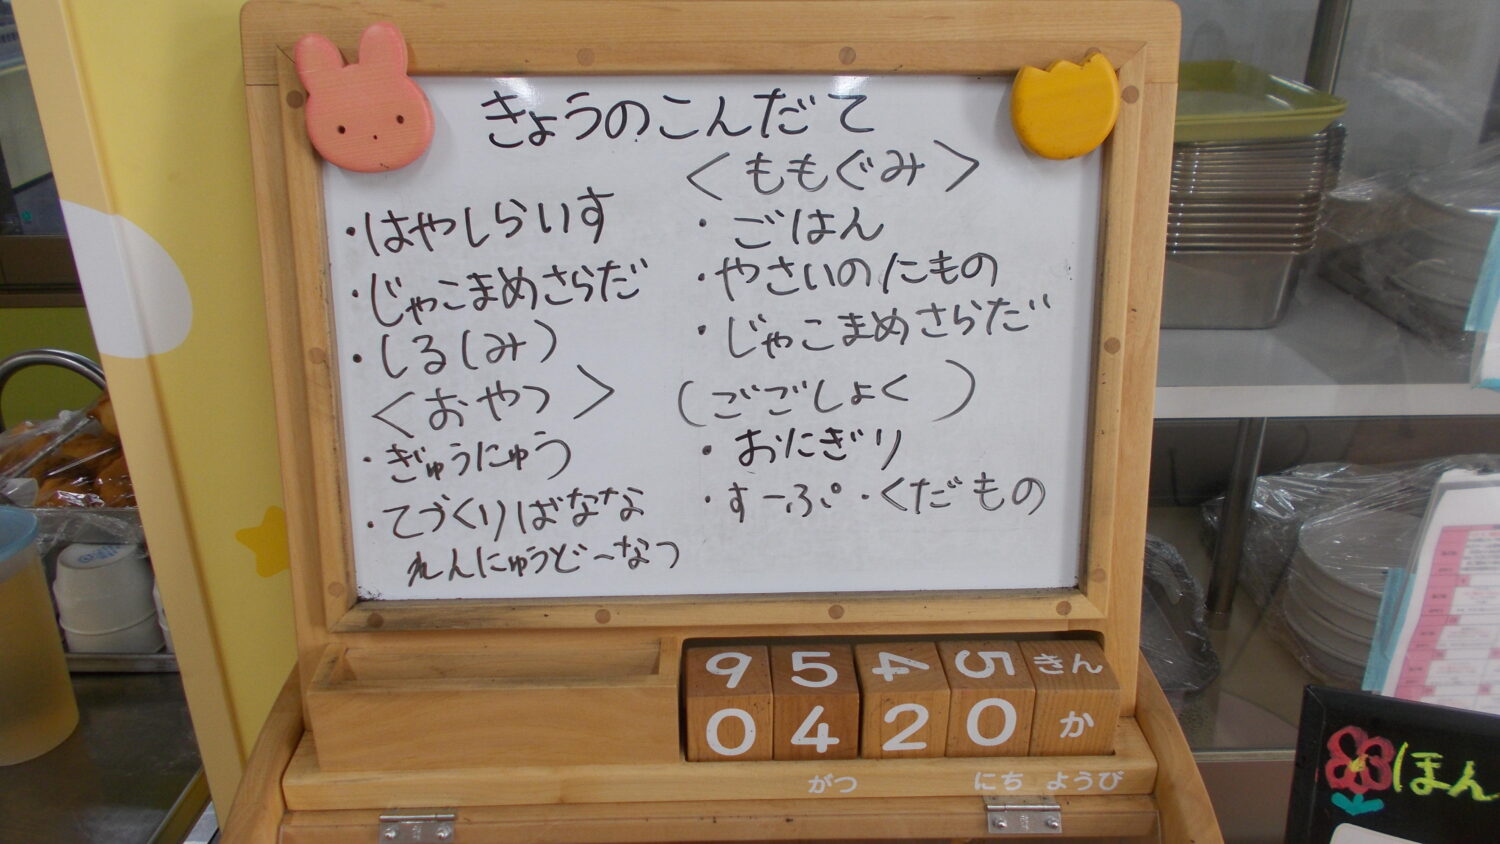 きょうのこんだて
・はやしらいす
・じゃこまめさらだ
・しる(み)
<おやつ>
・ぎゅうにゅう
・てづくりばなな
れんにゅうどーなつ
<ももぐみ>
・ごはん
・やさいのにもの
・じゃこまめさらだ
(ごごしょく)
・おにぎり
・すーぷ・くだもの
9 5 4 5 きん
0 4 2 0 か
がつ にち ようび
ほん